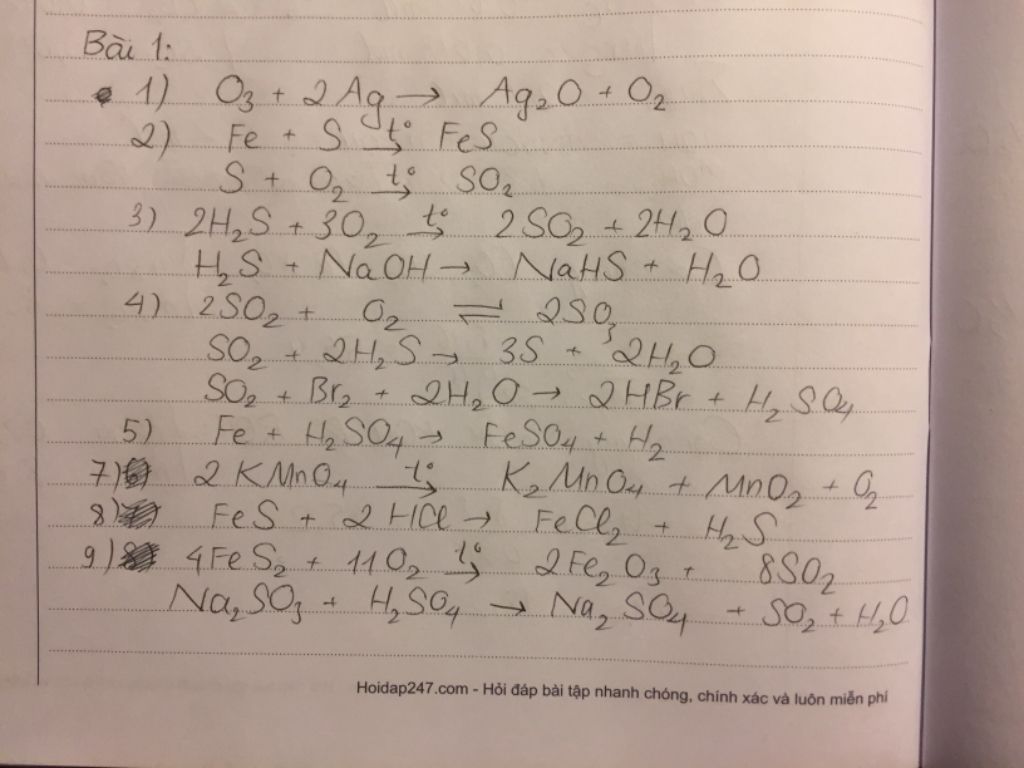 Bài 1:
1) O₃ + 2Ag → Ag₂O + O₂
2) Fe + S t°→ FeS
S + O₂ t°→ SO₂
3) 2H₂S + 3O₂ t°→ 2SO₂ + 2H₂O
H₂S + NaOH → NaHS + H₂O
4) 2SO₂ + O₂ ⇌ 2SO₃
SO₂ + 2H₂S → 3S + 2H₂O
SO₂ + Br₂ + 2H₂O → 2HBr + H₂SO₄
5) Fe + H₂SO₄ → FeSO₄ + H₂
7) 2KMnO₄ t°→ K₂MnO₄ + MnO₂ + O₂
8) FeS + 2HCl → FeCl₂ + H₂S
9) 4FeS₂ + 11O₂ t°→ 2Fe₂O₃ + 8SO₂
Na₂SO₃ + H₂SO₄ → Na₂SO₄ + SO₂ + H₂O
Hoidap247.com - Hỏi đáp bài tập nhanh chóng, chính xác và luôn miễn phí